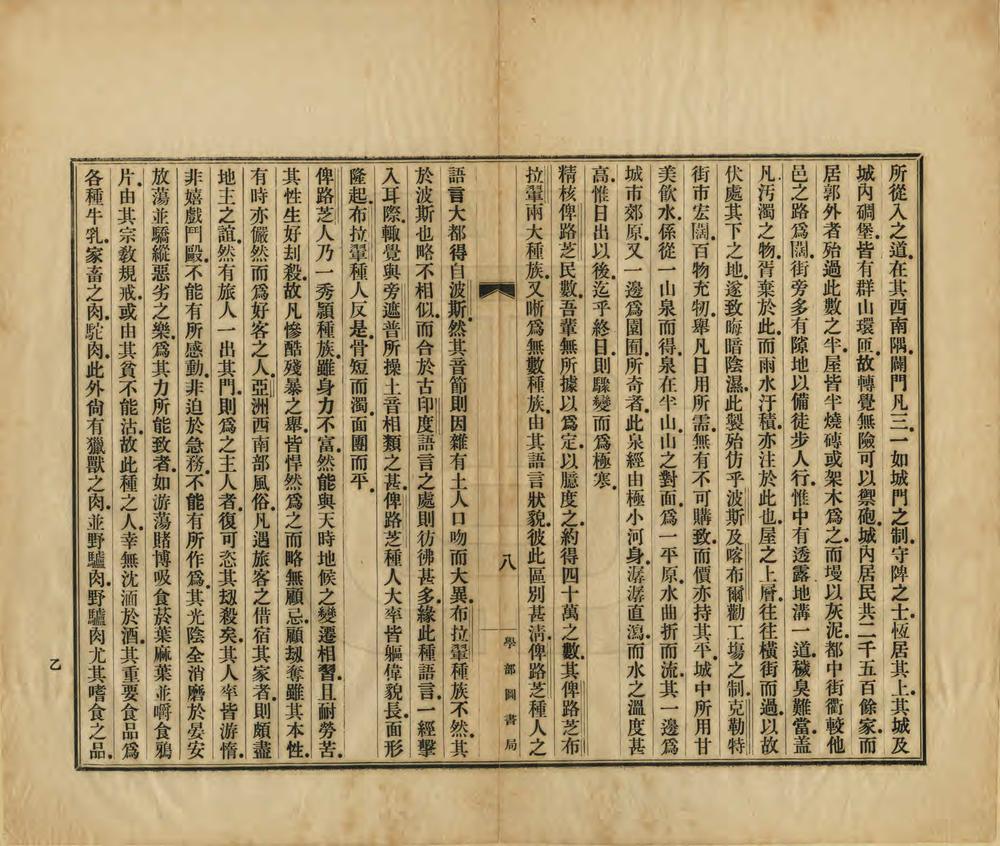 所從入之道。在其西南隅。闢門凡三。一如城門之制。守陴之士。恆居其上。其城及
城內碉堡。皆有群山環匝。故轉覺無險可以禦砲。城內居民共二千五百餘家。而
居郭外者殆過此數之半。屋皆半燒磚或架木爲之。而墁以灰泥。都中街衢較他
邑之路爲闊。街旁多有隙地以備徒步人行。惟中有透露地溝一道。穢臭難當。蓋
凡汚濁之物。胥棄於此。而雨水汙積。亦注於此也。屋之上層。往往橫街而過。以故
伏處其下之地。遂致晦暗陰濕。此製殆仿乎波斯及喀布爾勸工塲之制。克勒特
街市宏闊。百物充牣。舉凡日用所需。無有不可購致。而價亦持其平。城中所用甘
美飲水。係從一山泉而得。泉在半山。山之對面。爲一平原。水曲折而流。其一邊爲
城市郊原。又一邊爲園囿。所奇者。此泉經由極小河身。潺潺直瀉。而水之溫度甚
高。惟日出以後。迄乎終日。則驟變而爲極寒。
精核俾路芝民數。吾輩無所據以爲定。以臆度之。約得四十萬之數。其俾路芝布
拉暈兩大種族。又晰爲無數種族。由其語言狀貌。彼此區別甚淸。俾路芝種人之
八
學部圖書局
語言大都得自波斯。然其音節則因雜有土人口吻而大異。布拉暈種族不然。其
於波斯也略不相似。而合於古印度語言之處則彷彿甚多。緣此種語言。一經擊
入耳際。輒覺與旁遮普所操土音相類之甚。俾路芝種人大率皆軀偉貌長。面形
隆起。布拉暈種人反是。骨短而濁。面團而平。
俾路芝人乃一秀穎種族。雖身力不富。然能與天時地候之變遷相習。且耐勞苦。
其性生好刦殺。故凡慘酷殘暴之舉。皆悍然爲之而略無顧忌。顧刼奪雖其本性。
有時亦儼然而爲好客之人。亞洲西南部風俗。凡遇旅客之借宿其家者。則頗盡
地主之誼。然有旅人一出其門。則爲之主人者。復可恣其刼殺矣。其人率皆游惰。
非嬉戲鬥毆。不能有所感動。非迫於急務。不能有所作爲。其光陰全消磨於晏安
放蕩並驕縱惡劣之樂。爲其力所能致者。如游蕩賭博吸食菸葉麻葉並嚼食鴉
片。由其宗敎規戒。或由其貧不能沽。故此種之人。幸無沈湎於酒。其重要食品爲
各種牛乳。家畜之肉。駝肉。此外尙有獵獸之肉。並野驢肉。野驢肉尤其嗜食之品。
乙